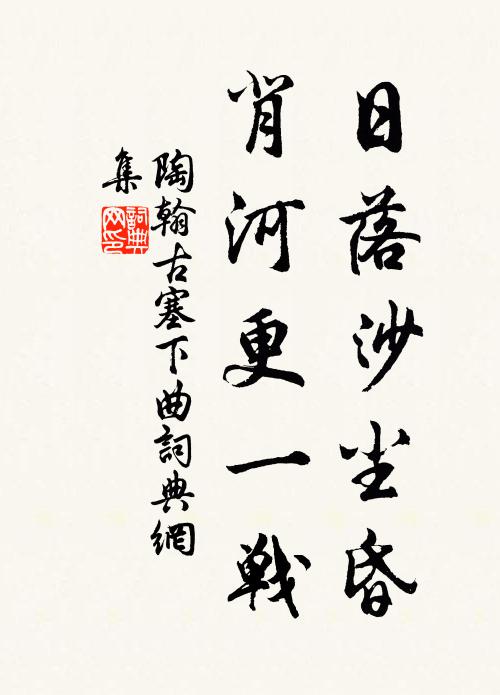 日落沙尘昏
背河更一戰
陶翰古塞下曲詞典網
集
詞典
网印